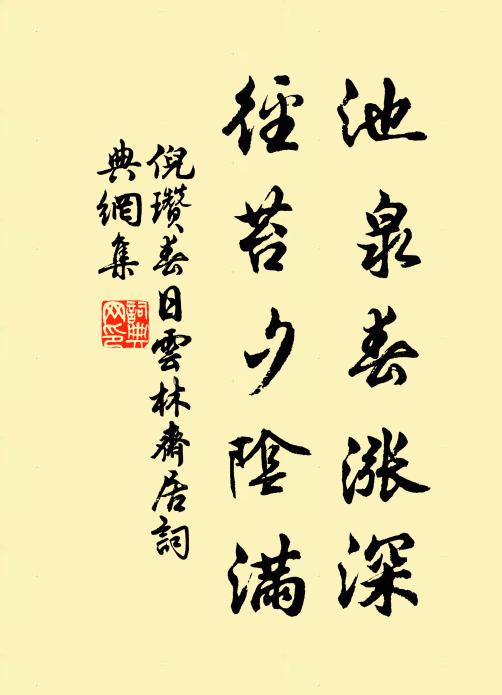 池泉春漲深
徑苔夕陰滿
倪瓚春日雲林齋居詞
典網集
詞典
网印